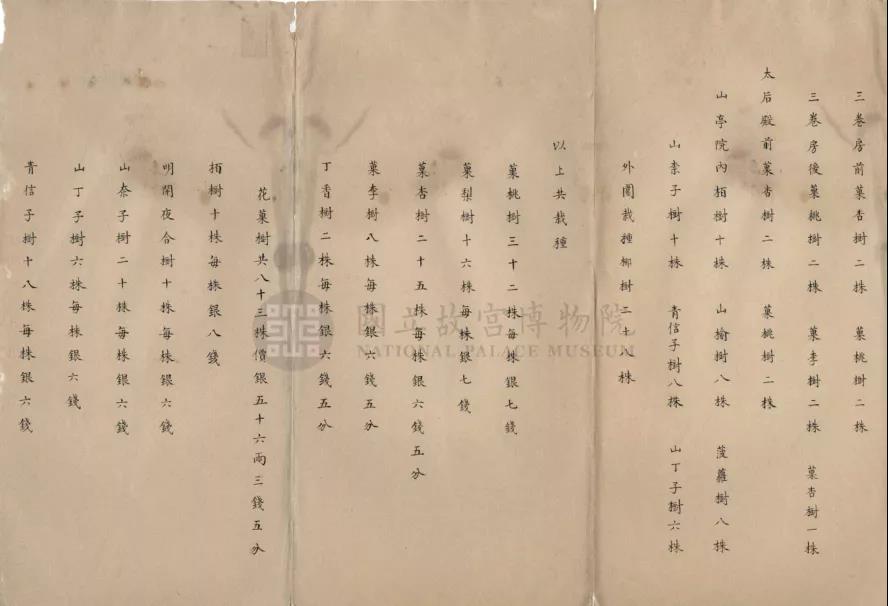 三卷房前菓杏樹二株　菓桃樹二株
三卷房後菓桃樹二株　菓李樹二株　菓杏樹一株
太后殿前菓杏樹二株　菓桃樹二株
山亭院內栢樹十株　山榆樹八株　菠蘿樹八株
山柰子樹十株　青信子樹八株　山丁子樹六株
外圍栽種柳樹二十八株
以上共栽種
菓桃樹三十二株每株銀七錢
菓梨樹十六株每株銀七錢
菓杏樹二十五株每株銀六錢五分
菓李樹八株每株銀六錢五分
丁香樹二株每株銀六錢五分
花菓樹共八十三株價銀五十六兩三錢五分
栢樹十株每株銀八錢
明開夜合樹十株每株銀六錢
山柰子樹二十株每株銀六錢
山丁子樹六株每株銀六錢
青信子樹十八株每株銀六錢
國立故宮博物院
NATIONAL PALACE MUSEUM